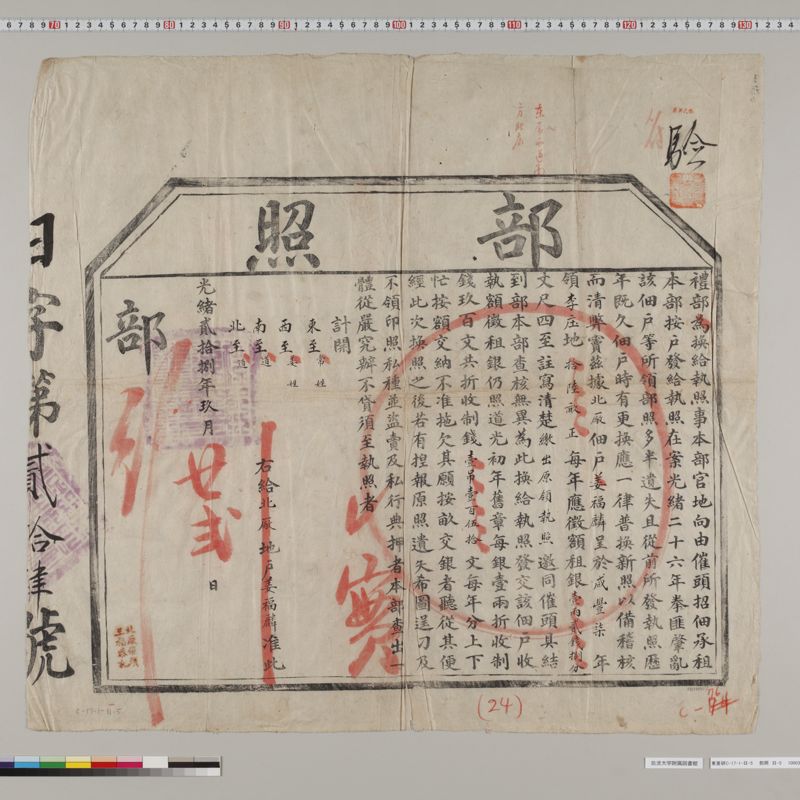 驗
部照
禮部為換給執照事本部官地向由催頭招佃承租
本部按戶發給執照在案光緒二十六年拳匪肇亂
該佃戶等所領部照多半遺失且從前所發執照歷
年既久佃戶時有更換應一律普換新照以備稽核
而清弊竇茲據北廠佃戶姜福麟呈於咸豐柒年
領李庄地拾陸畝正每年應徵額租銀壹兩貳錢捌分
丈尺四至註寫清楚繳出原領執照邀同催頭具結
到部本部查核無異為此換給執照發交該佃戶收
執額徵租銀仍照道光初年舊章每銀壹兩折收制
錢玖百文共折收制錢壹吊壹百伍拾文每年分上下
忙按額交納不准拖欠其願按畝交銀者聽從其便
經此次換照之後若有捏報原照遺失希圖送刁及
不領印照私種並盜賣及私行典押者本部查出一
體從嚴究辦不貸須至執照者
計開
東至常姓
西至姜姓
南至道
北至道
右給北廠地戶姜福麟准此
光緒貳拾捌年玖月廿貳日
部
實
日字第貳拾肆號
C-17-1-II-5
(24)
筑波大学附属図書館